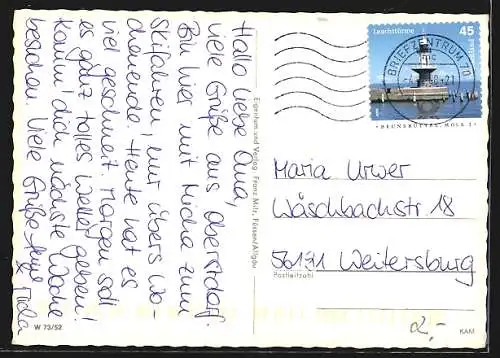 Hallo liebe Oma,
viele Grüße aus Oberstdorf.
Bin hier mit Micha zum
Skifahren, nur übers Wo-
chenende. Heute hat es
viel geschneit. Morgen soll
es ganz tolles Wetter geben!
Komm' dich nächste Woche
besuchen. Viele Grüße
Eigentum und Verlag Franz Milz, Füssen/Allgäu
Leuchttürme 45
BRIEFZENTRUM 70
BRUNSBÜTTEL MOLE 1
Maria Urwer
Wäschbachstr 18
56191 Weitersburg
Postleitzahl
2,-
W 73/52
KAM